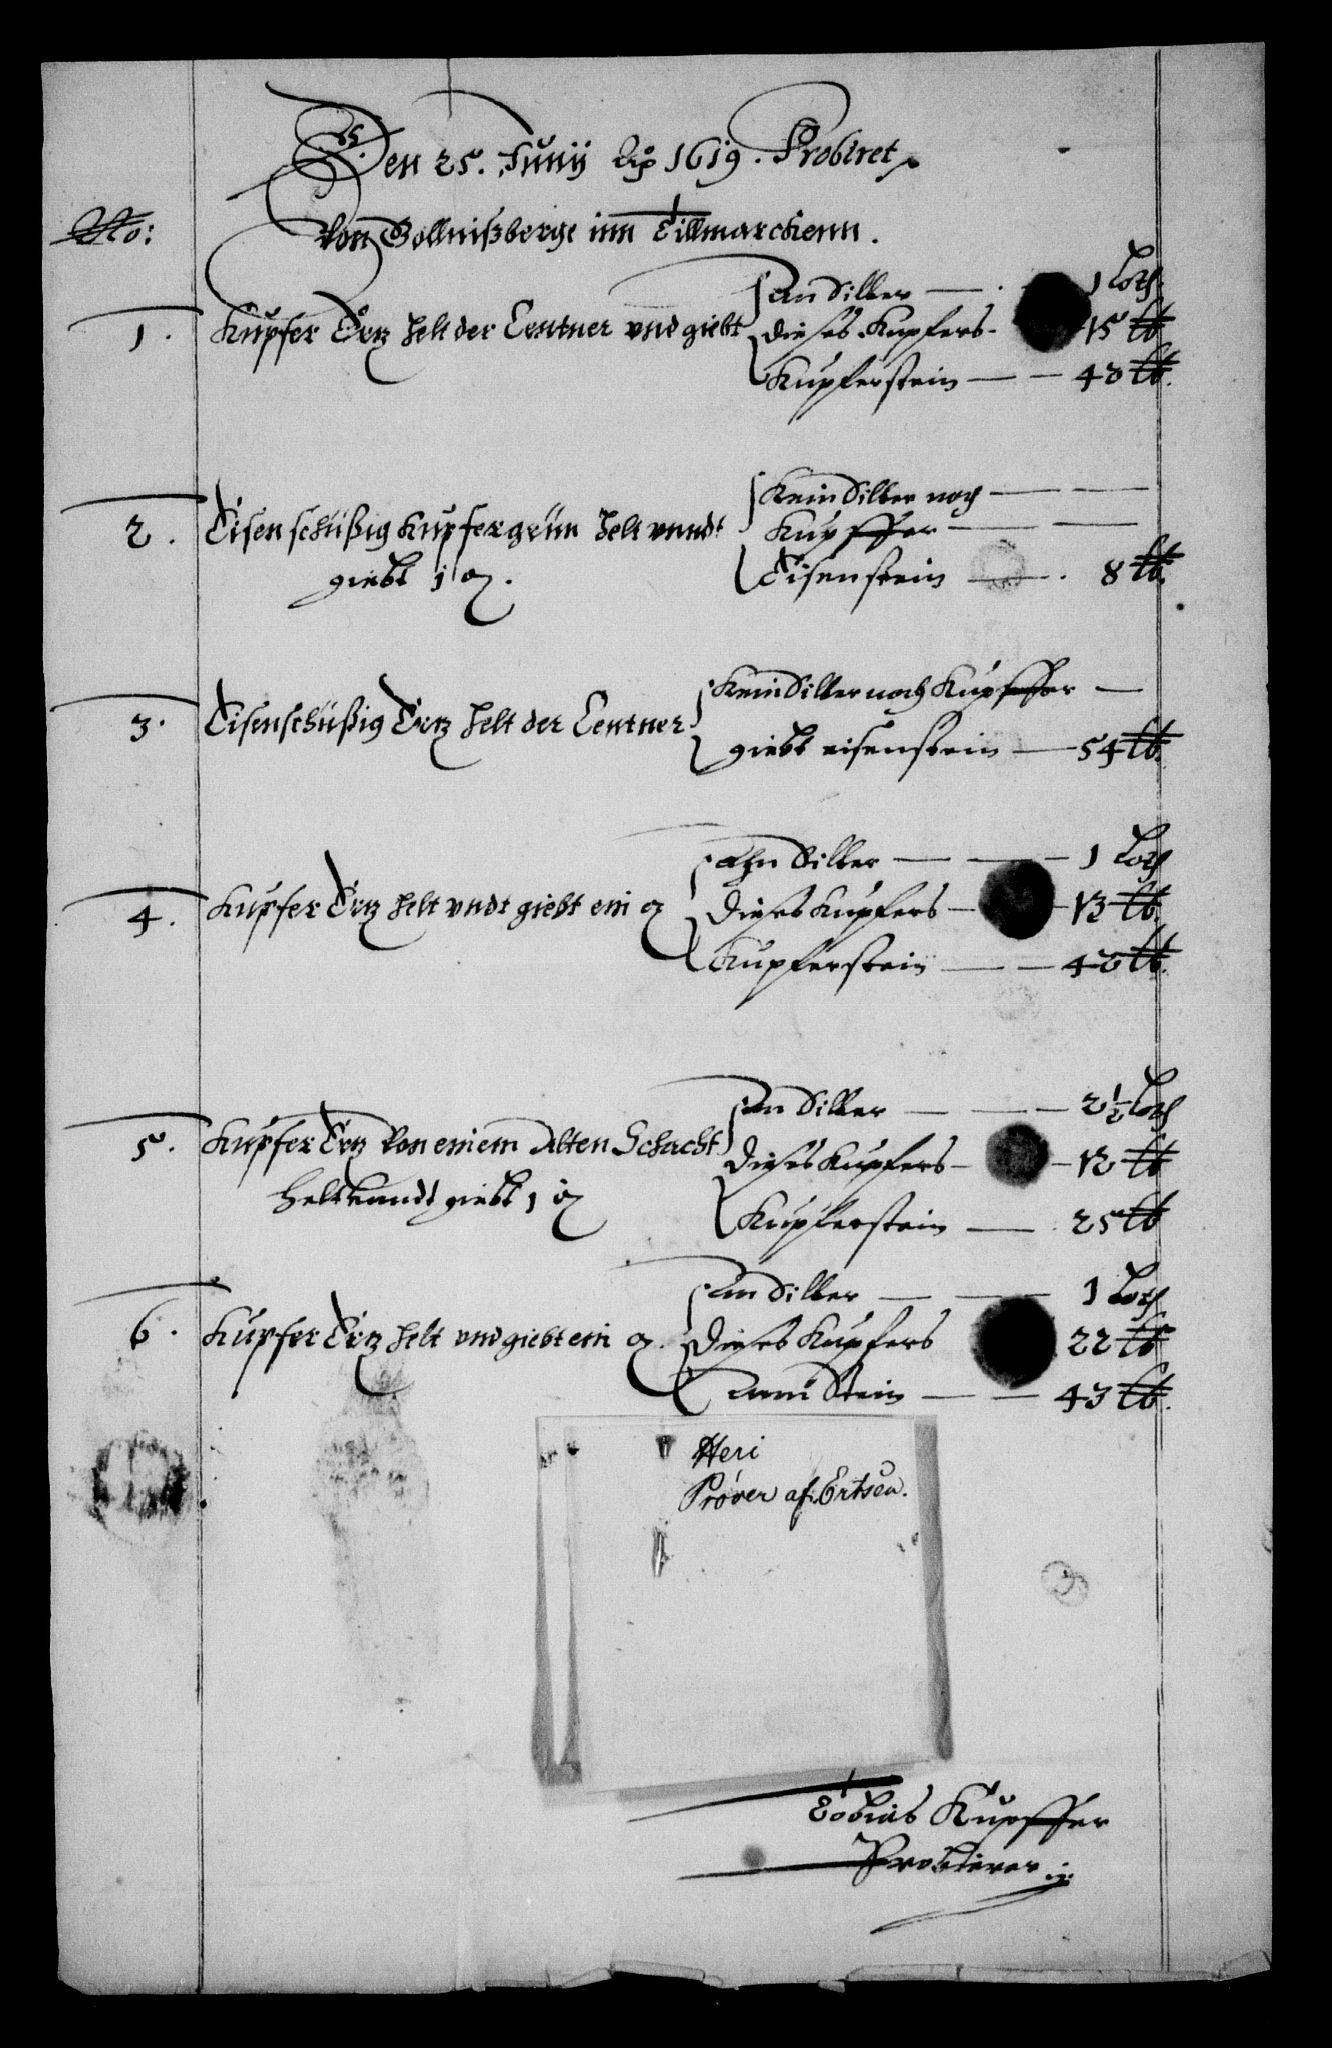 Den 25. Junij Ao 1619. Probiret
No:
Von Gollnißberge inn Tillmarckenn.
1. Kupfer Ertz helt der Centner vnd giebt
an Silber — 1 Loth
dieses Kupfers — 15 lb
Kupferstein — 48 lb.
2. Eisenschüßig Kupfergrün helt vnndt
giebt 1 Ctr.
Kein Silber noch —
Kupffer —
Eisenstein — 8 lb.
3. Eisenschüßig Ertz helt der Centner
Kein Silber noch Kupffer —
giebt eisenstein — 54 lb.
4. Kupfer Ertz helt vndt giebt ein Ctr
Ahn Silber — 1 Loth
dieses Kupfers — 13 lb.
Kupferstein — 40 lb.
5. Kupfer Ertz Von einem Alten Schacht
helt vnndt giebt 1 Ctr
an Silber — 2½ Loth
dieses Kupfers — 12 lb
Kupferstein — 25 lb
6. Kupfer Ertz helt vnd giebt ein Ctr.
an Silber — 1 Loth
dieses Kupfers 22 lb
Stein — 43 lb.
Heri
Prøver af Ertsen.
Tobias Kupffer
Probierer